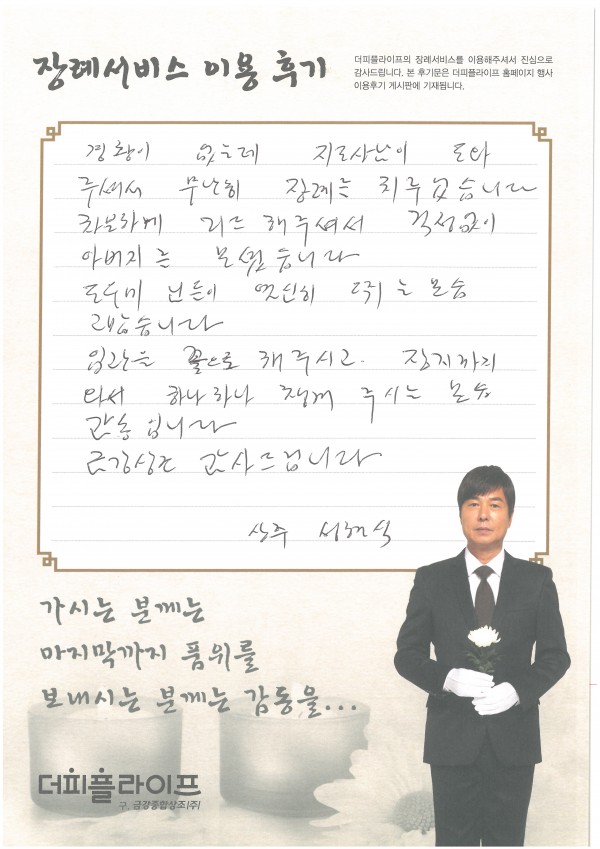 장례서비스 이용 후기
더피플라이프의 장례서비스를 이용해주셔서 진심으로
감사드립니다. 본 후기문은 더피플라이프 홈페이지 행사
이용후기 게시판에 기재됩니다.
경황이 없는데 지도사님이 도와
주셔서 무난히 장례를 치루었습니다
차분하게 리드 해주셔서 걱정없이
아버지를 모셨습니다
도우미 분들이 열심히 모습
고맙습니다
입관을 꽃으로 해주시고. 장지까지
와서 하나하나 챙겨 주시는 모습
감동입니다
금강상조 감사드립니다
상주 서해식
가시는 분께는
마지막까지 품위를
보내시는 분께는 감동을...
더피플라이프
구. 금강종합상조(주)